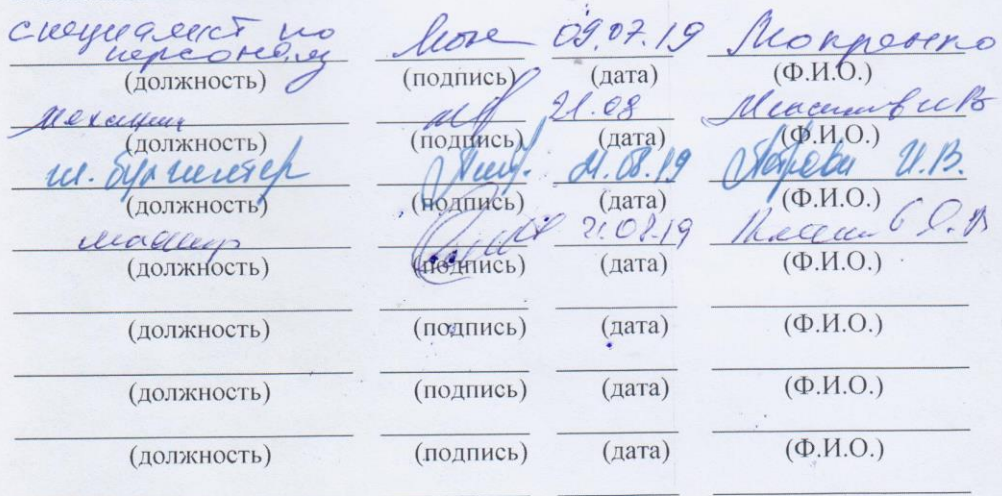 специалист по
персоналу 09.07.19 Мокренко
(должность) (подпись) (дата) (Ф.И.О.)
механик 21.08
(должность) (подпись) (дата) (Ф.И.О.)
гл. бухгалтер 21.08.19 Петрова И.В.
(должность) (подпись) (дата) (Ф.И.О.)
маляр 21.08.19
(должность) (подпись) (дата) (Ф.И.О.)
(должность) (подпись) (дата) (Ф.И.О.)
(должность) (подпись) (дата) (Ф.И.О.)
(должность) (подпись) (дата) (Ф.И.О.)